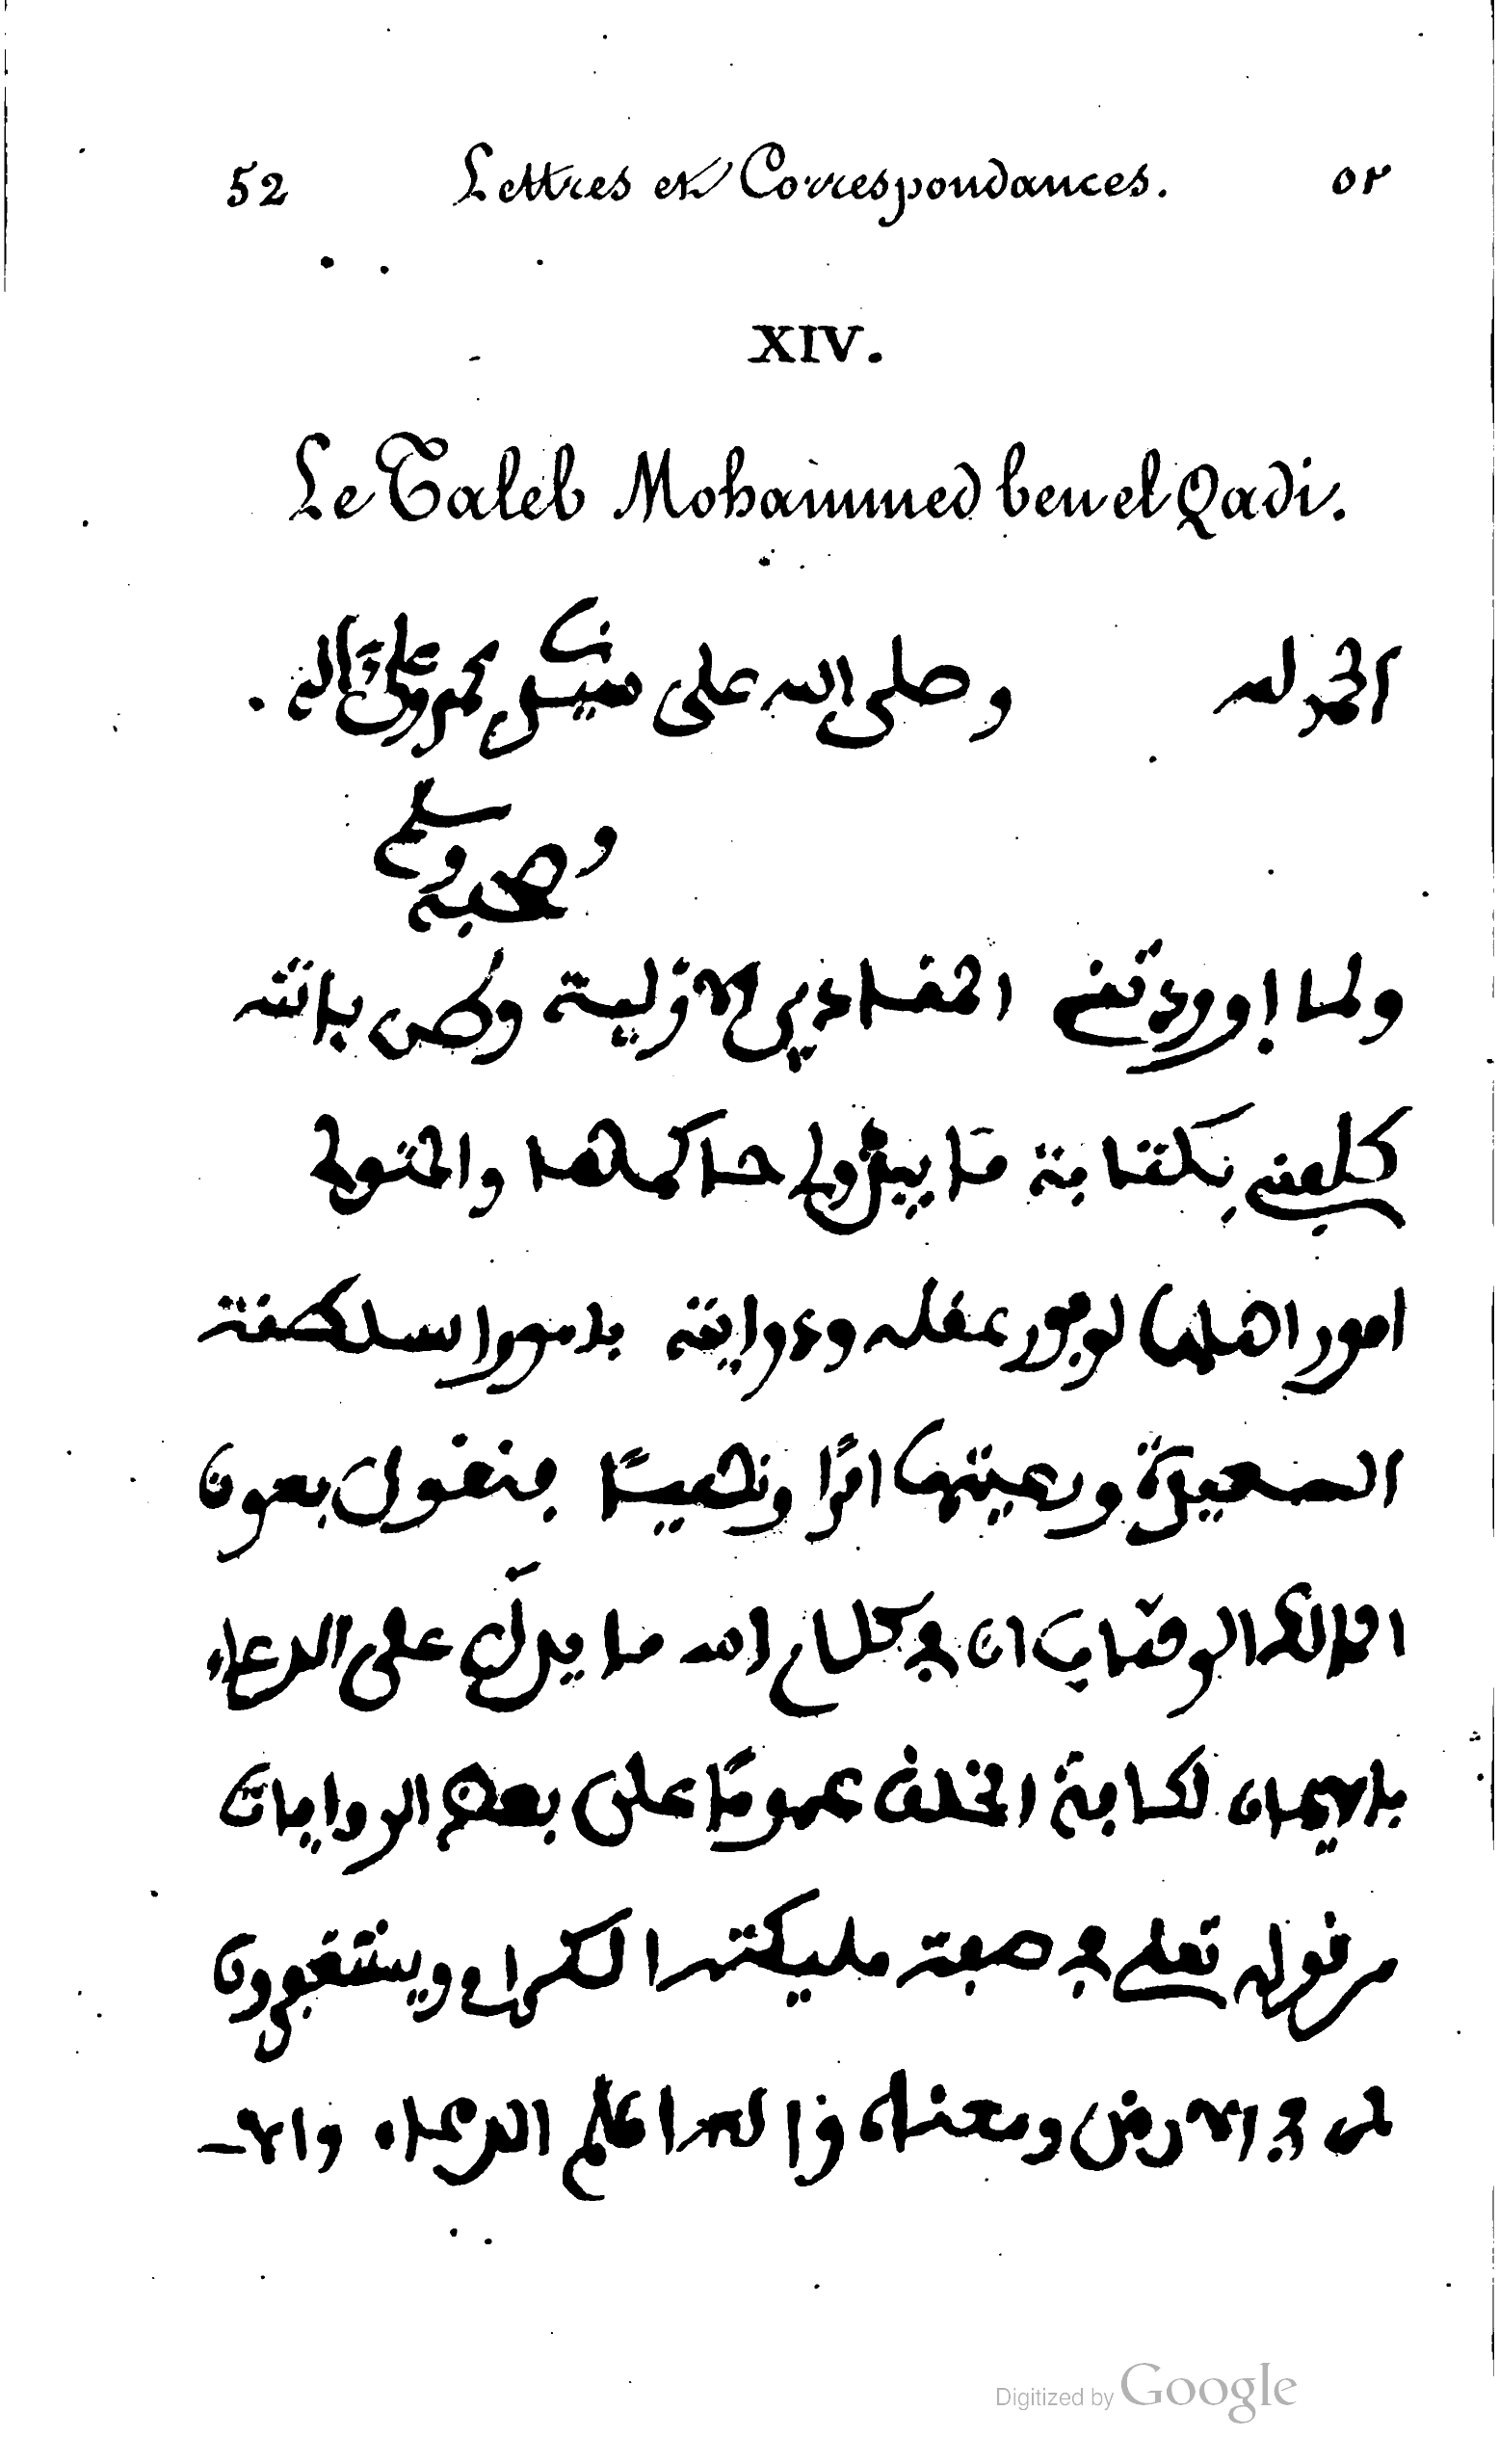 52 Lettres et Correspondances. ٥٢
XIV.
Le Taleb Mohammed ben el Qadi.
الحمد لله وصلى الله على سيدنا محمد وعلى آله
وصحبه وسلم
ولما اوردتني المقادير الازلية وطن بانتنه
كلفني بكتابة ما يبرز ولى حاكمها والمتولى
امور اهلها لوفور عقله ودرايته بامور السلطنة
السعيدة ورعيتها امرًا ونهيًا فنقول بعون
الملك الوهاب ان في كلام الله ما يدل على الدعاء
بالايمان لكافة الخلف عمومًا على بعض الروايات
من قوله تعلى في صفة مليكته الكرام ويستغفرون
لمن في الارض ومعناه والله اعلم الدعاء والا
Digitized by Google